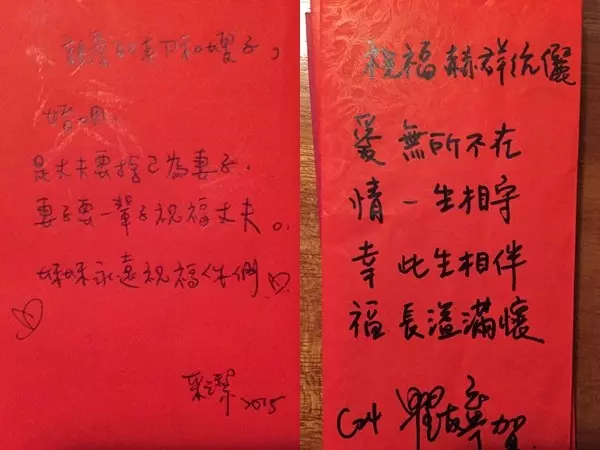 親愛的弟弟和嫂子，
婚姻，
是丈夫要捨己為妻子，
妻子要一輩子祝福丈夫。
妹妹永遠祝福你們
2015
祝福赫祥伉儷
愛 無所不在
情 一生相守
幸 此生相伴
福 長溢滿懷
賀